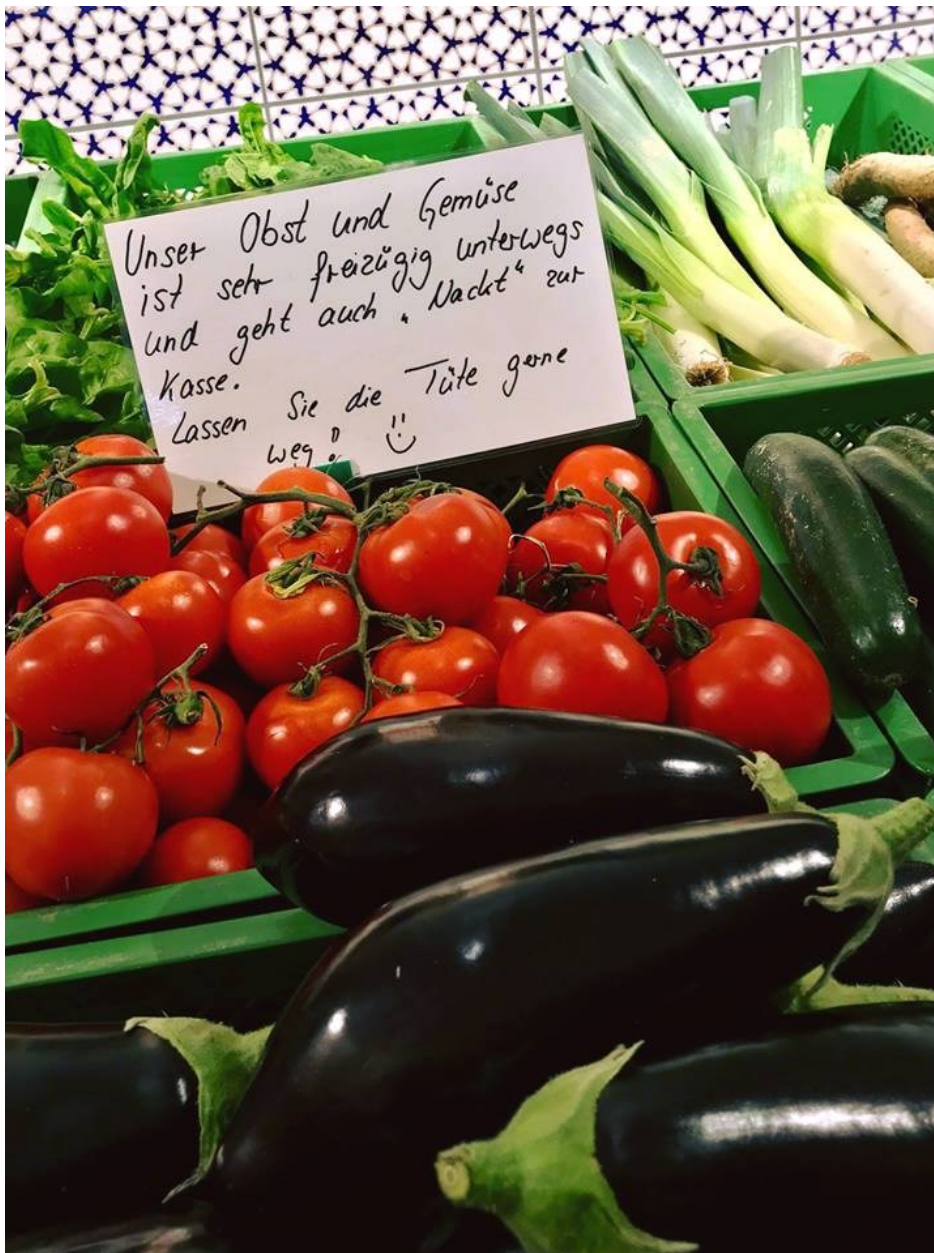 Unser Obst und Gemüse
ist sehr freizügig unterwegs
und geht auch „Nackt“ zur
Kasse.
Lassen Sie die Tüte gerne
weg!